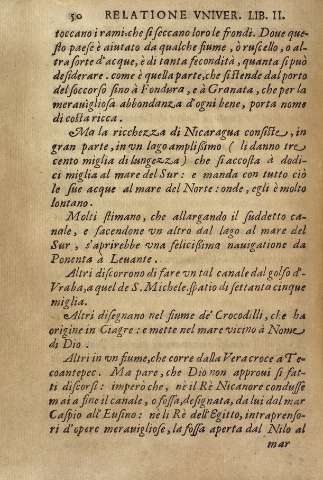 50 RELATIONE VNIVER. LIB. II.
toccano i rami che si seccano loro le frondi. Doue que-
sto paese è aiutato da qualche fiume, ò ruscello, o al-
tra sorte d'acque, è di tanta fecondità, quanta si può
desiderare. come è quella parte, che si stende dal porto
del soccorso sino à Fondura, e à Granata, che per la
merauigliosa abbondanza d'ogni bene, porta nome
di costa ricca.
Ma la ricchezza di Nicaragua consiste, in
gran parte, in vn lago amplissimo ( li danno tre
cento miglia di lungezza) che si accosta à dodi-
ci miglia al mare del Sur: e manda con tutto ciò
le sue acque al mare del Norte: onde, egli è molto
lontano.
Molti stimano, che allargando il suddetto ca-
nale, e facendone vn altro dal lago al mare del
Sur, s'aprirebbe vna felicissima nauigatione da
Ponenta à Leuante.
Altri discorrono di fare vn tal canale dal golfo d'-
Vraba, a quel de S. Michele. spatio di settanta cinque
miglia.
Altri disegnano nel fiume de' Crocodilli, che ha
origine in Ciagre: e mette nel mare vicino à Nome
di Dio.
Altri in vn fiume, che corre dalla Vera croce a Te-
coantepec. Ma pare, che Dio non approui sì fat-
ti discorsi: imperòche, nè il Rè Nicanore condusse
mai a fine il canale, o fossa, designata, da lui dal mar
Caspio all'Eusino: nè li Rè dell'Egitto, intraprenso-
ri d'opere merauigliose, la fossa aperta dal Nilo al
mar